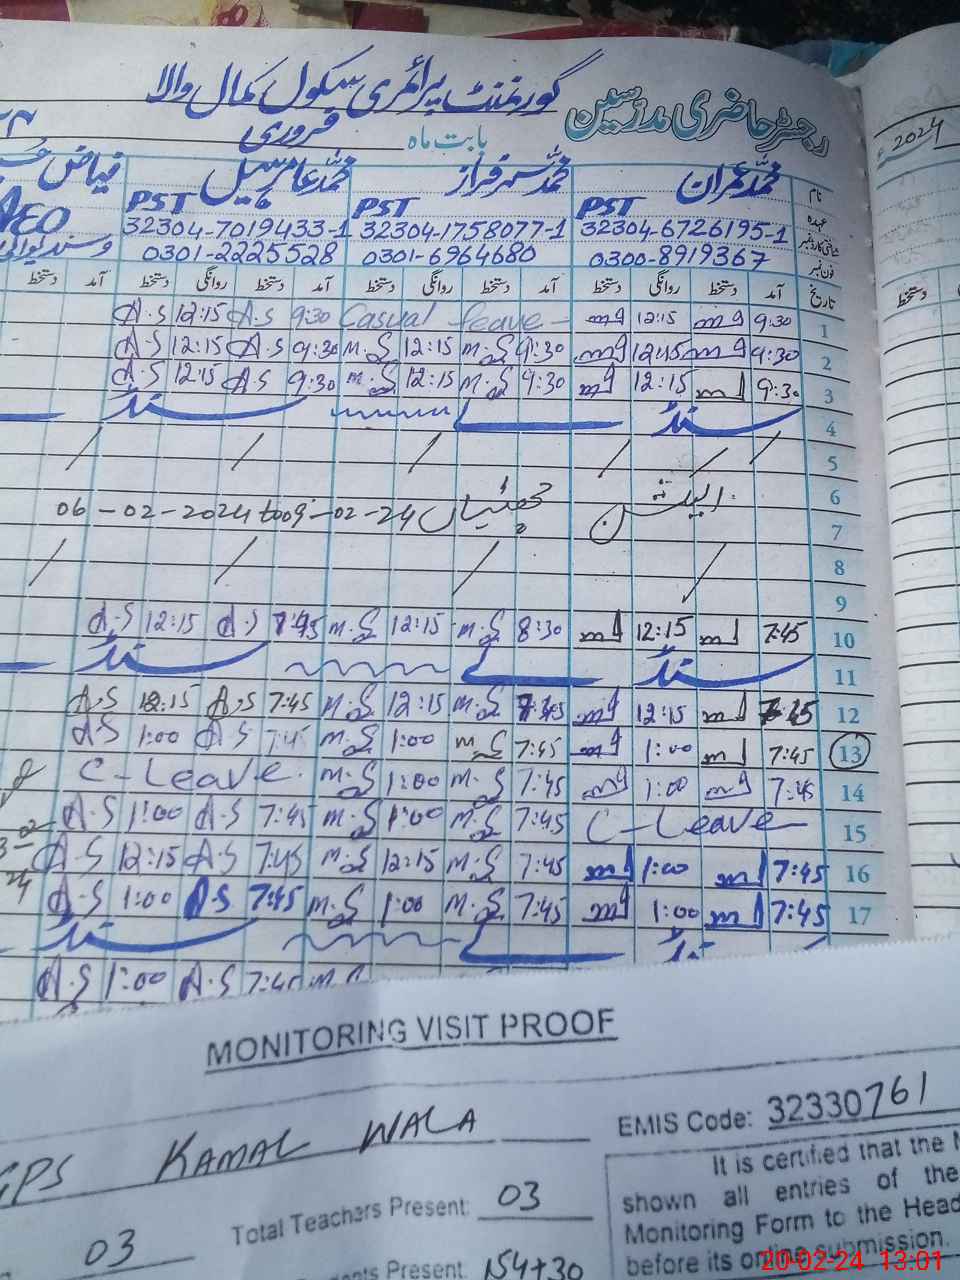 رجسٹر حاضری مدرسین گورنمنٹ پرائمری سکول کمال والا
بابت ماہ فروری
2024ء
نام محمد عمران محمد سرفراز محمد عامر سہیل فیاض
عہدہ PST PST PST AEO
شناختی کارڈ نمبر 32304-6726195-1 32304-1758077-1 32304-7019433-1
فون نمبر 0300-8919367 0301-6964680 0301-2225528
تاریخ آمد دستخط روانگی دستخط آمد دستخط روانگی دستخط آمد دستخط روانگی دستخط آمد دستخط
1 9:30 12:15 Casual leave 9:30 A.S 12:15 A.S
2 9:30 12:15 9:30 M.S 12:15 M.S 9:30 A.S 12:15 A.S
3 9:30 12:15 9:30 M.S 12:15 M.S 9:30 A.S 12:15 A.S
4 سنڈے سنڈے
5
6 الیکشن چھٹیاں 06-02-2024 to 09-02-24
7
8
9
10 7:45 12:15 8:30 M.S 12:15 M.S 7:45 A.S 12:15 A.S
11 سنڈے سنڈے
12 7:45 12:15 7:45 M.S 12:15 M.S 7:45 A.S 12:15 A.S
13 7:45 1:00 7:45 M.S 1:00 M.S 7:45 A.S 1:00 A.S
14 7:45 1:00 7:45 M.S 1:00 M.S C-Leave
15 C-Leave 7:45 M.S 1:00 M.S 7:45 A.S 1:00 A.S
16 7:45 1:00 7:45 M.S 12:15 M.S 7:45 A.S 12:15 A.S
17 7:45 1:00 7:45 M.S 1:00 M.S 7:45 A.S 1:00 A.S
سنڈے
7:45 A.S 1:00 A.S
MONITORING VISIT PROOF
GPS KAMAL WALA
EMIS Code: 32330761
03 Total Teachers Present: 03
154+30
It is certified that the
shown all entries of the
Monitoring Form to the Head
before its online submission.
20-02-24 13:01